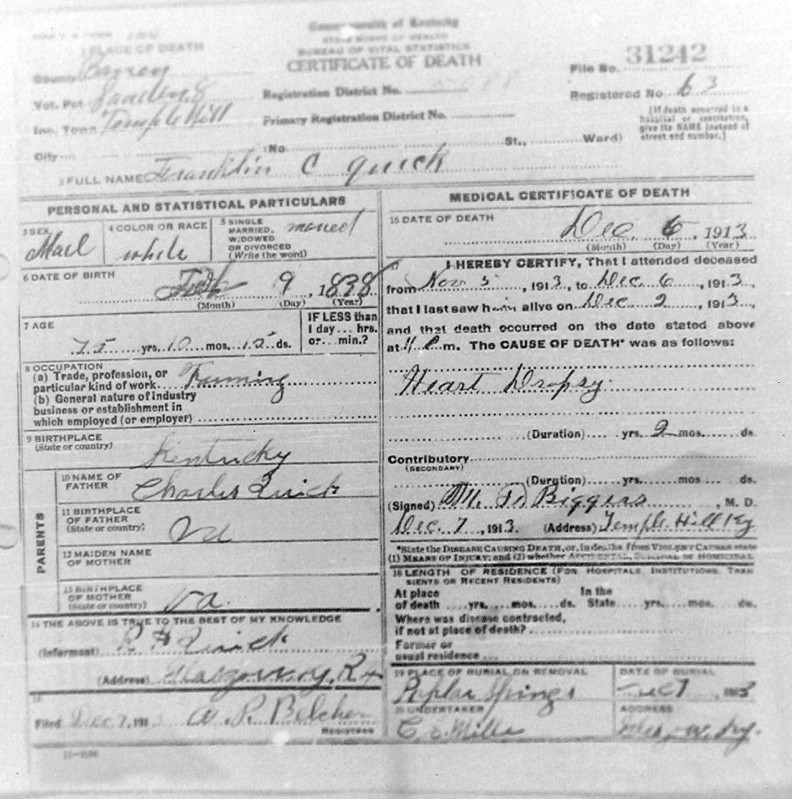 Commonwealth of Kentucky
STATE BOARD OF HEALTH
BUREAU OF VITAL STATISTICS
CERTIFICATE OF DEATH
1 PLACE OF DEATH
County Barren
Vot. Pct Sanders
Inc. Town Temple Hill
City
Registration District No.
Primary Registration District No.
(No St., Ward)
File No. 31242
Registered No. 63
[If death occurred in a hospital or institution, give its NAME instead of street and number.]
2 FULL NAME Franklin C quick
PERSONAL AND STATISTICAL PARTICULARS
3 SEX Mael
4 COLOR OR RACE while
5 SINGLE MARRIED, WIDOWED OR DIVORCED (Write the word)
6 DATE OF BIRTH 9, 1838
(Month) (Day) (Year)
7 AGE
75 yrs. 10 mos. 15 ds.
IF LESS than 1 day... hrs. or... min.?
8 OCCUPATION
(a) Trade, profession, or particular kind of work Farming
(b) General nature of industry business or establishment in which employed (or employer)
9 BIRTHPLACE
(State or country) Kentucky
PARENTS
10 NAME OF FATHER Charles Quick
11 BIRTHPLACE OF FATHER (State or country) Va
12 MAIDEN NAME OF MOTHER
13 BIRTHPLACE OF MOTHER (State or country) va.
14 THE ABOVE IS TRUE TO THE BEST OF MY KNOWLEDGE
(Informant) Quick
(Address)
15
Filed Dec 7, 1913 A. P. Belcher
REGISTRAR
MEDICAL CERTIFICATE OF DEATH
16 DATE OF DEATH Dec 6, 1913
(Month) (Day) (Year)
17 I HEREBY CERTIFY, That I attended deceased
from Nov 5, 1913, to Dec 6, 1913,
that I last saw him alive on Dec 2, 1913,
and that death occurred on the date stated above
at m. The CAUSE OF DEATH* was as follows:
Heart Dropsy.
(Duration) yrs. 2 mos. ds.
Contributory
(SECONDARY)
(Duration) yrs. mos. ds.
(Signed) Biggers, M. D.
Dec. 7, 1913. (Address) Temple Hill Ky
*State the DISEASE CAUSING DEATH, or, in deaths from VIOLENT CAUSES state
(1) MEANS OF INJURY; and (2) whether ACCIDENTAL, SUICIDAL or HOMICIDAL
18 LENGTH OF RESIDENCE (FOR HOSPITALS, INSTITUTIONS, TRANSIENTS OR RECENT RESIDENTS)
At place of death yrs. mos. ds. In the State yrs. mos. ds.
Where was disease contracted, if not at place of death?
Former or usual residence
19 PLACE OF BURIAL OR REMOVAL Poplar Springs
DATE OF BURIAL Dec 7, 1913
20 UNDERTAKER Mills
ADDRESS